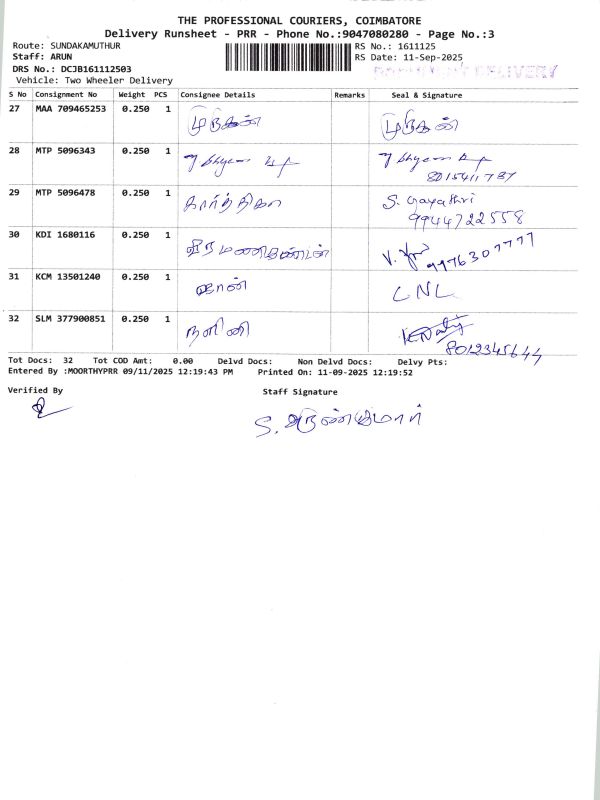 THE PROFESSIONAL COURIERS, COIMBATORE
Delivery Runsheet - PRR - Phone No.:9047080280 - Page No.:3
Route: SUNDAKAMUTHUR RS No.: 1611125
Staff: ARUN RS Date: 11-Sep-2025
DRS No.: DCJB161112503 DELIVERY
Vehicle: Two Wheeler Delivery
S No Consignment No Weight PCS Consignee Details Remarks Seal & Signature
27 MAA 709465253 0.250 1 முருகன் முருகன்
28 MTP 5096343 0.250 1
8015411787
29 MTP 5096478 0.250 1 கார்த்திகா S. Gayathri
9944722558
30 KDI 1680116 0.250 1 வீரமணிகண்டன் V. 9976307777
31 KCM 13501240 0.250 1 ஜான் CNL
32 SLM 377900851 0.250 1 நளினி
8012345644
Tot Docs: 32 Tot COD Amt: 0.00 Delvd Docs: Non Delvd Docs: Delvy Pts:
Entered By :MOORTHYPRR 09/11/2025 12:19:43 PM Printed On: 11-09-2025 12:19:52
Verified By Staff Signature
S. அருண்குமார்